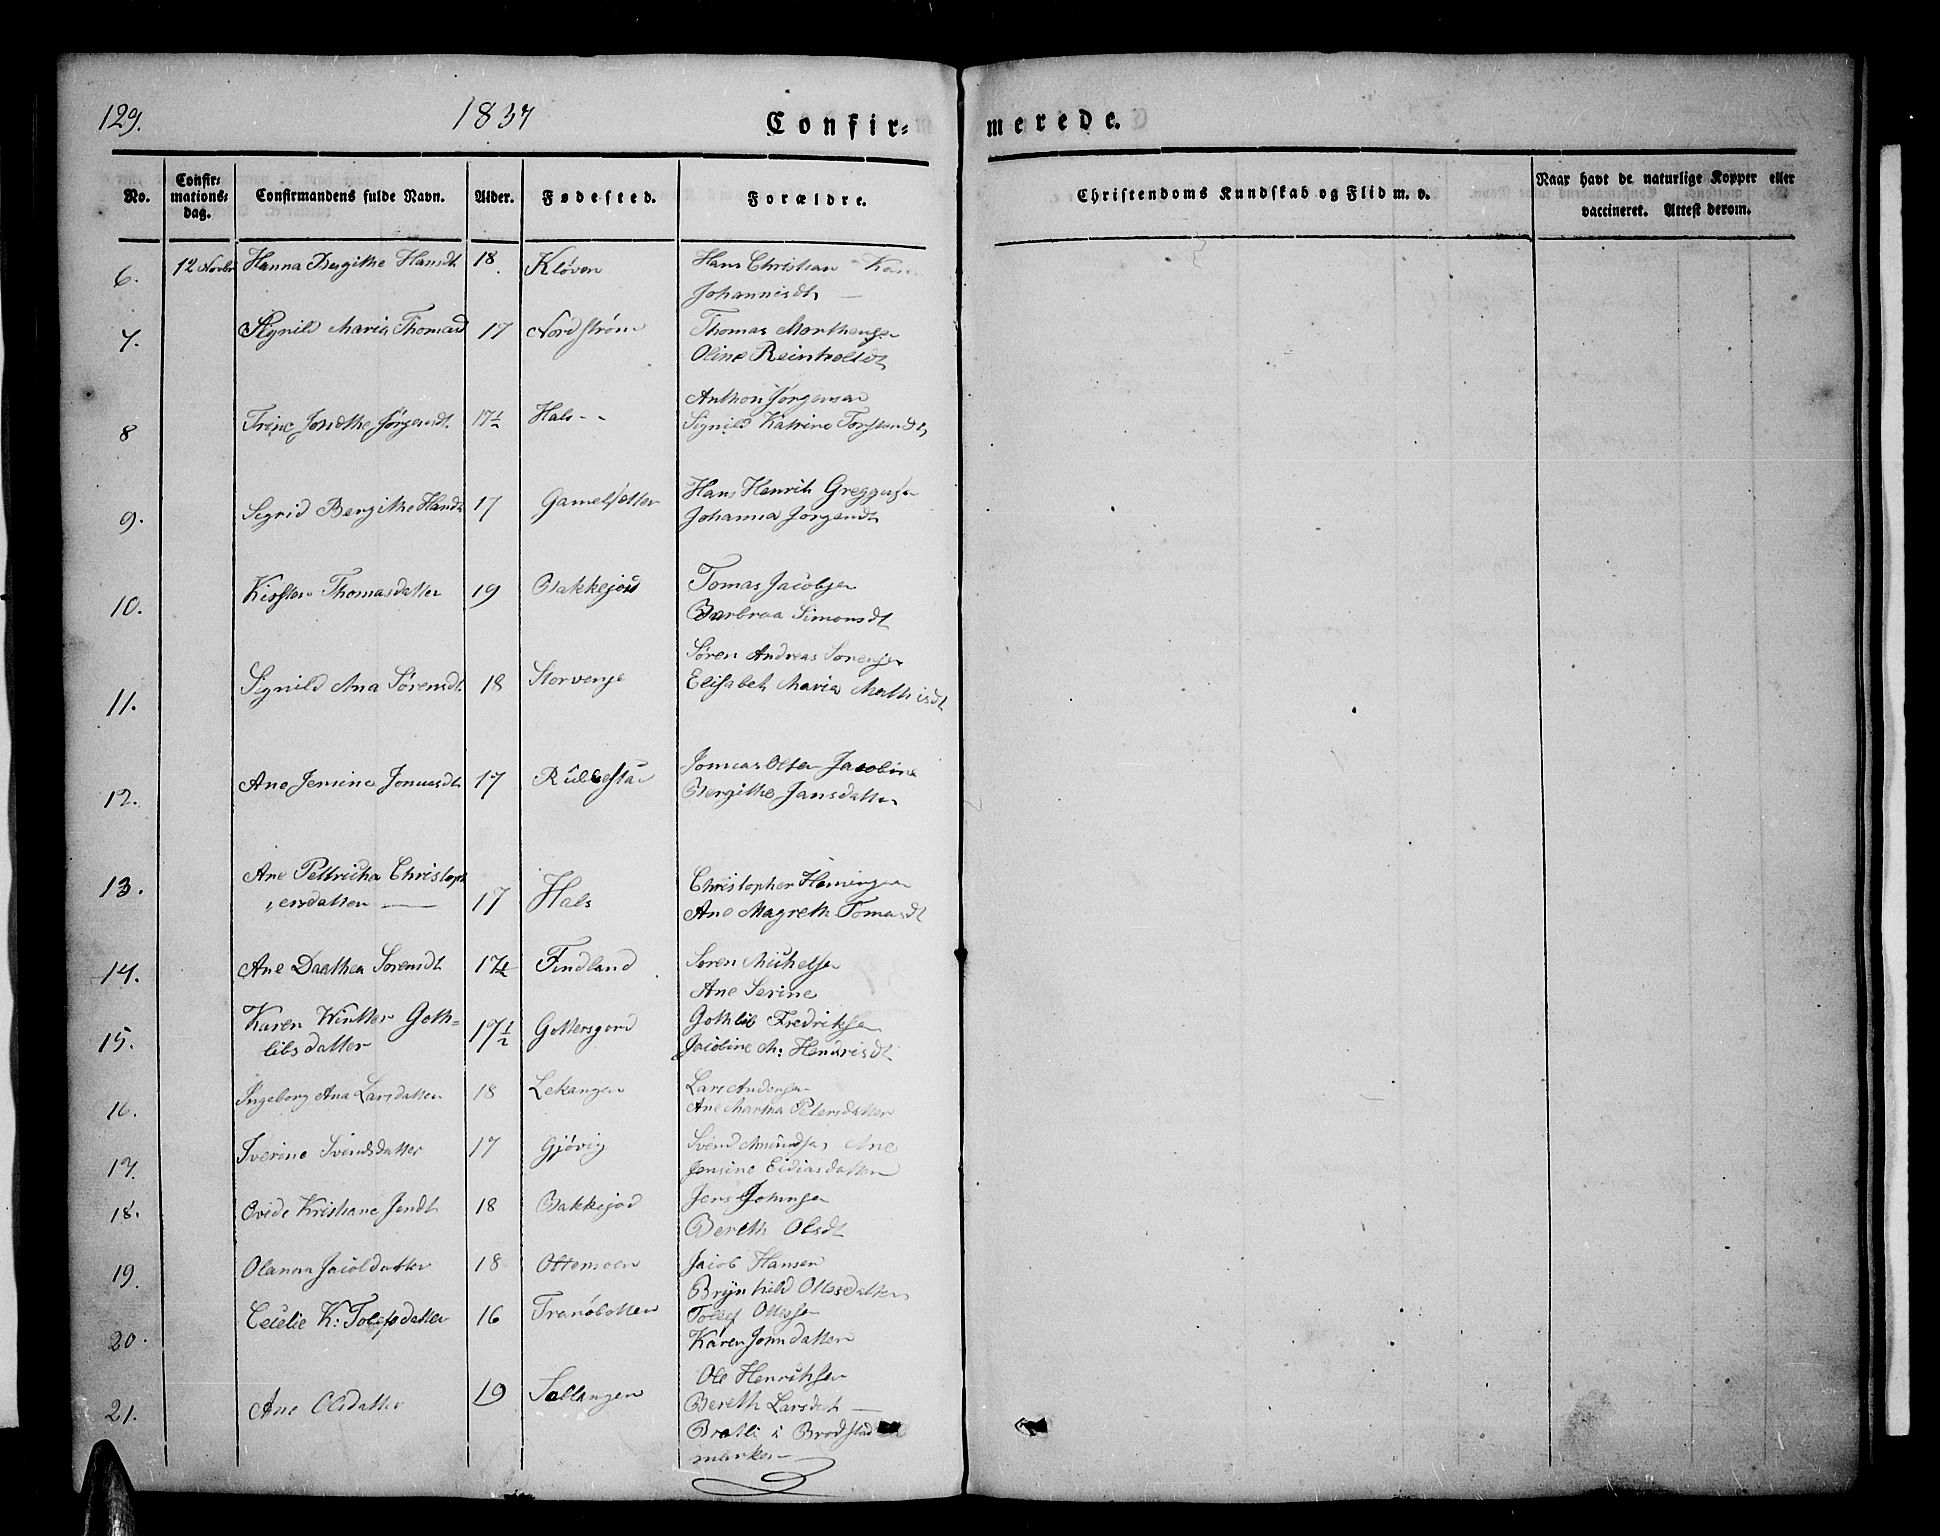 129.
1837
Confir=
merede.
No.
Confir=
mations=
dag.
Confirmandens fulde Navn.
Alder.
Fødested.
Forældre.
Christendoms Kundskab og Flid m. v.
Naar havt de naturlige Kopper eller
vaccineret. Attest derom.
6. 12 Novbr Hanna Bergithe Hansdt 18 Kløven Hans Christian
Johannisdt
7. Signild Maria Thomasd 17 Nordstrøm Thomas Morthensen
Oline Reinholtdt
8 Trine Jørgensdt. 17½ Hals Anthon Jørgensen
Signild Katrine Torstendt
9. Sigrid Bergithe Hansd 17 Gamelsetter Hans Henrik Greggersen
Johanna Jørgendt
10. Kirsten Thomasdatter 19 Bakkejord Tomas Jacobsen
Barbroa Simonsdt
11. Signild Ana Sørensdt. 18 Storvenge Søren Andreas Sørensen
Elisabet Maria Mathisdt
12. Ane Jensine Jonasdt 17 Jonas Olsen Jacobine
Bergithe Jansdatter
13. Ane Pettricha Christoph
„ersdatter 17 Hals Christopher Hemingsen
Ane Magreth Tomasdt
14. Ane Daathea Sørensdt 17½ Findland Søren Michelsen
Ane Serine
15. Karen Winther Goth=
libsdatter 17½ Gottersgord Gothlib Fredriksen
Jacobine M: Hendrisdt
16. Ingeborg Ana Larsdatter 18 Lekangen Lars Andersen
Ane Martha Petersdatter
17. Iverine Svendsdatter 17 Gjøvig Svend Amundsen Ane
Jensine Eidiasdatter
18. Ovide Kristiane Jensdt 18 Bakkejod Jens
Bereth Olsdt
19. Olanna Jacobdatter 18 Ottemoen Jacob Hansen
Brynhild Ottesdatter
20. Cecelie K: Tolefsdatter 16 Tranøbotten Tollef Ottesen
Karen Jonsdatter
21. Ane Olsdatter 19 Sallangen Ole Henriksen
Bereth Larsdatt
Bratli i Brodstad
marken